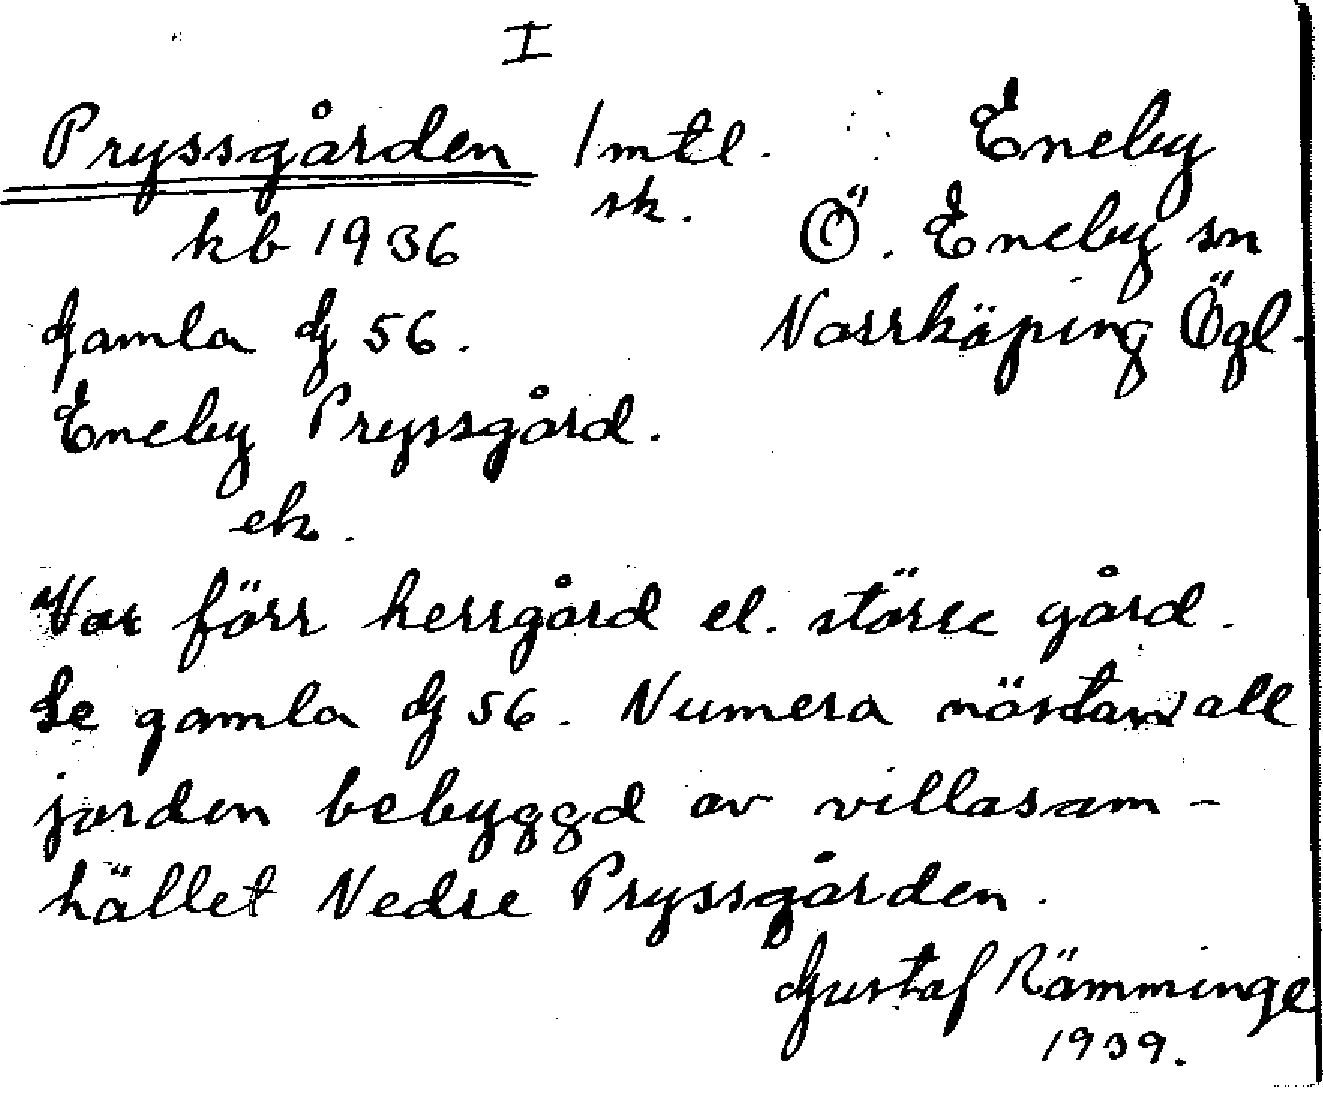 I
Pryssgården 1 mtl. Eneby
sk.
kb 1936 Ö. Eneby sn
Gamla G 56. Norrköping Ögl.
Eneby Pryssgård.
ek.
Var förr herrgård el. större gård.
Se gamla G 56. Numera nästan all
jorden bebyggd av villasam-
hället Nedre Pryssgården.
Gustaf Rämminge
1939.